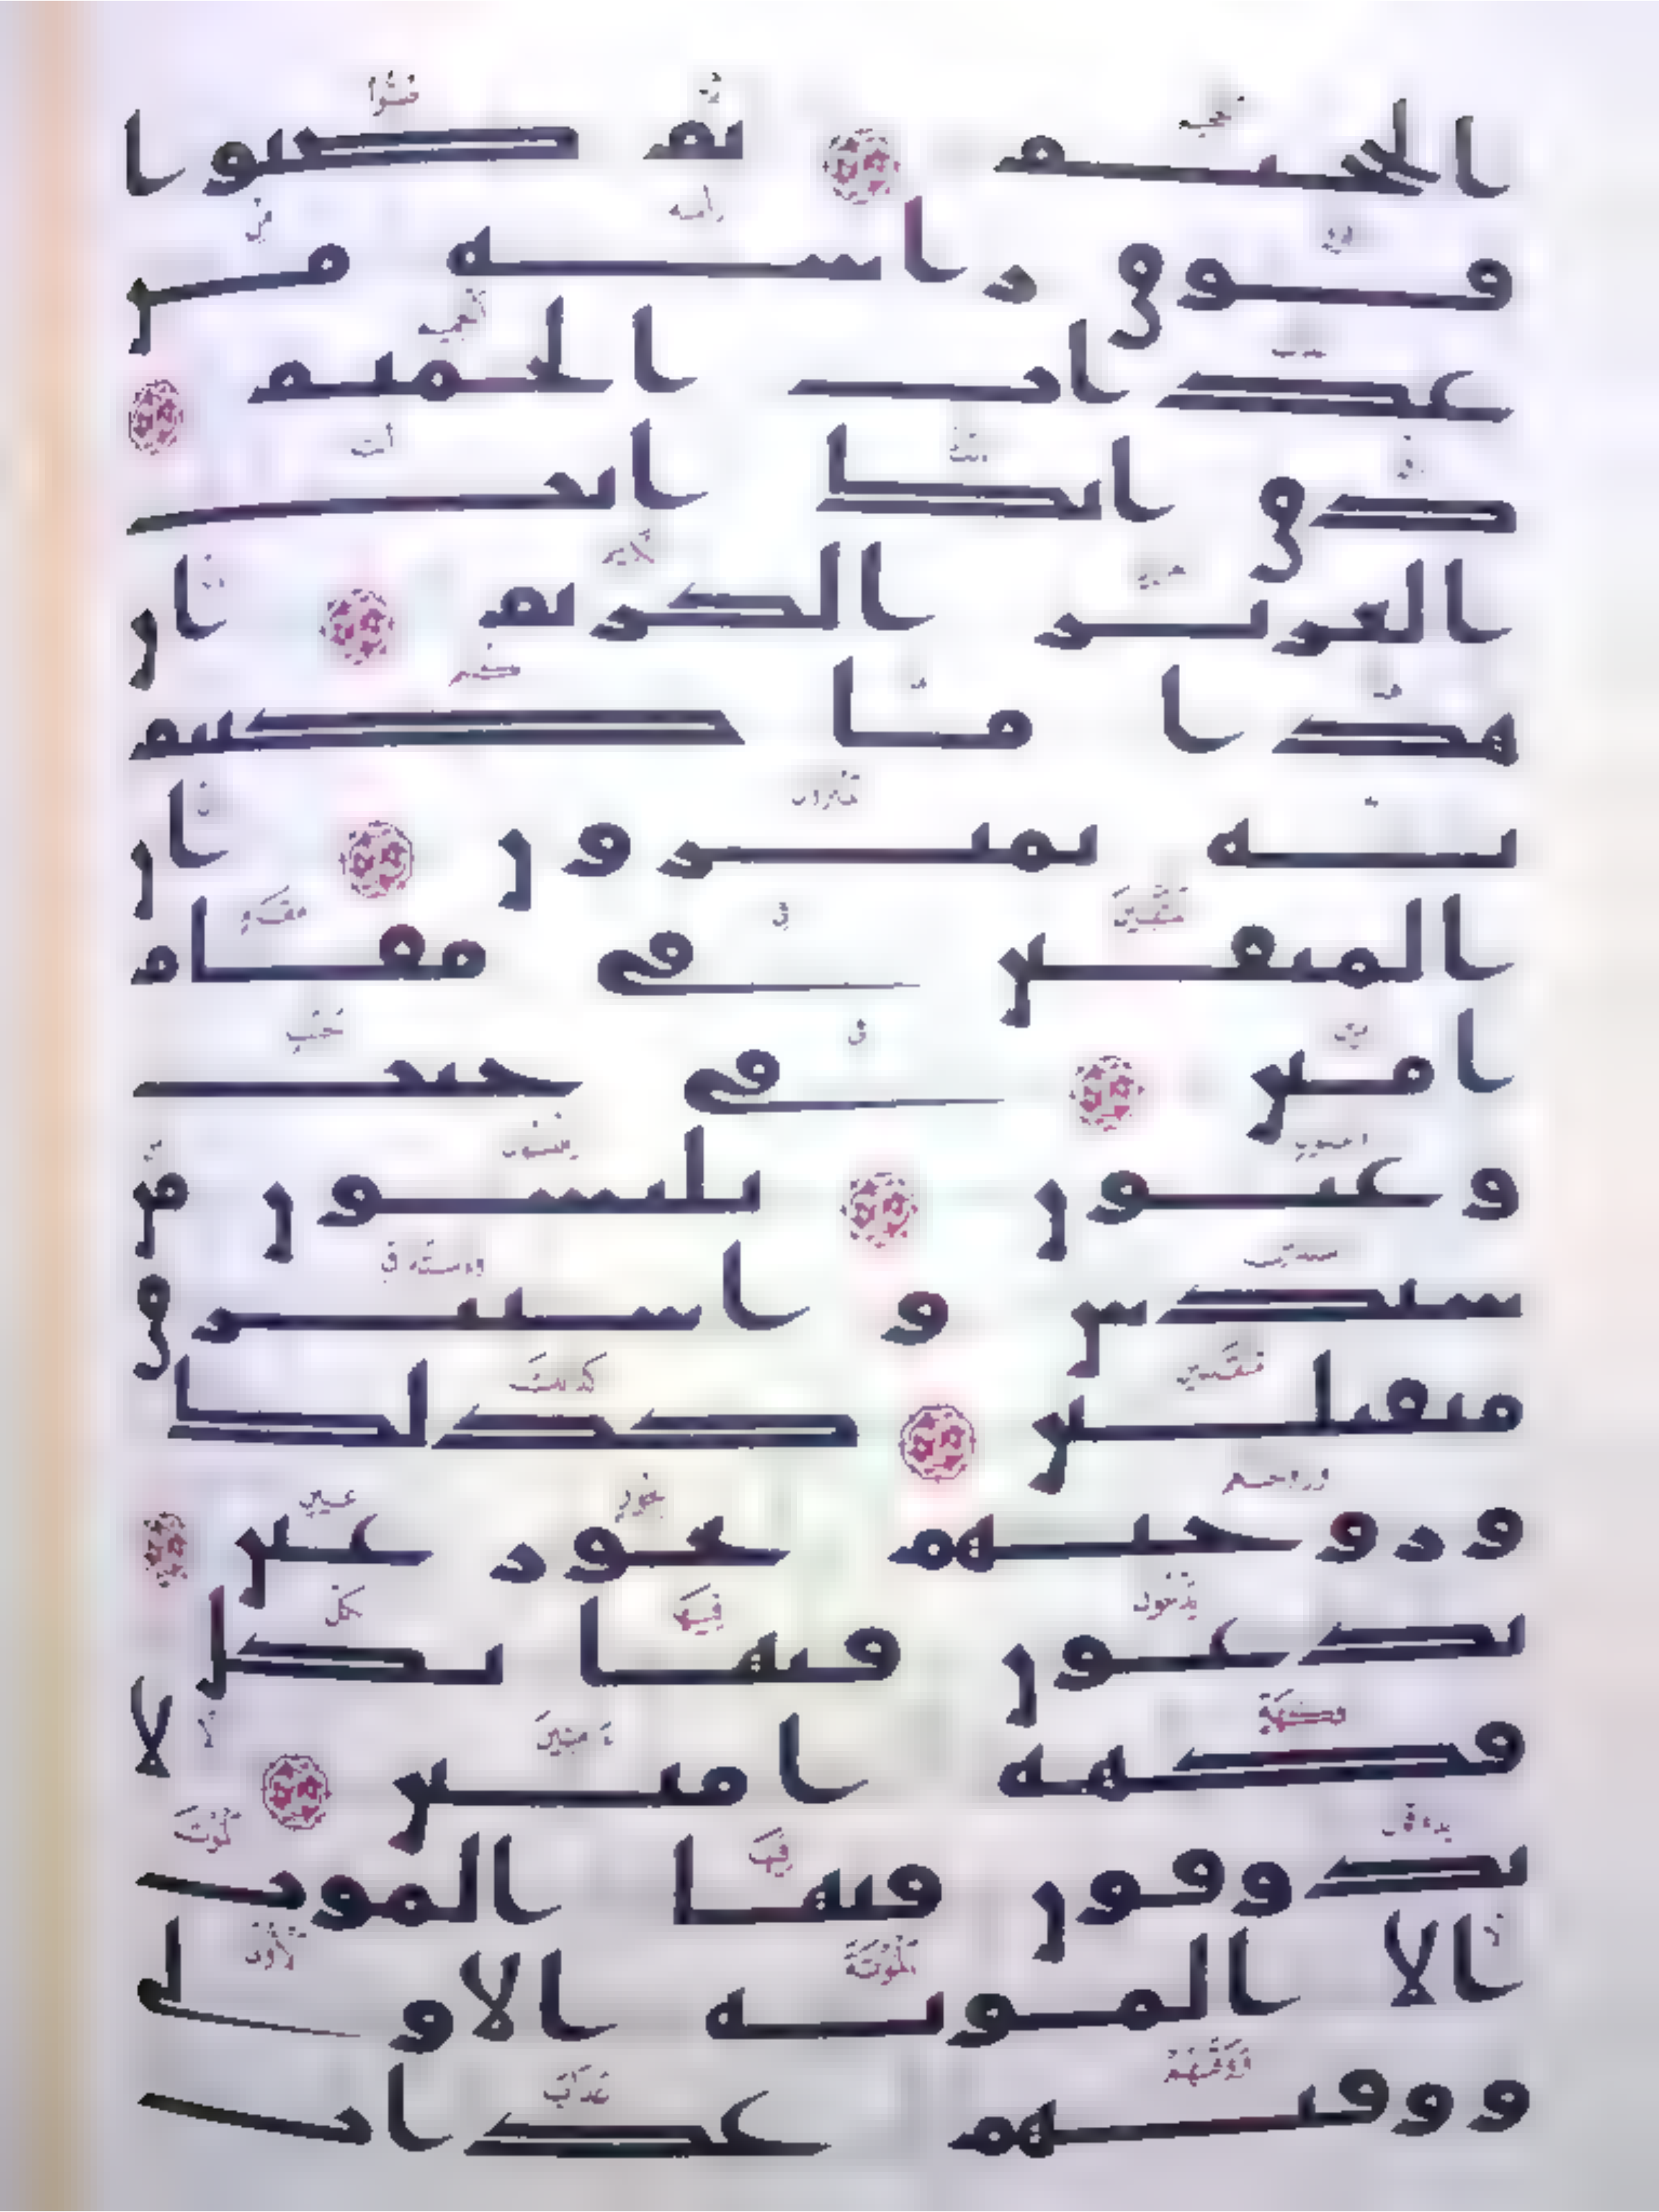 الجحيم ثم صبوا
فوق راسه من
عذاب الحميم
ذق انك انت
العزيز الكريم ان
هذا ما كنتم
به تمترون ان
المتقين في مقام
امين في جنت
وعيون يلبسون من
سندس و استبرق
متقبلين كذلك
وزوجنهم بحور عين
يدعون فيها بكل
فكهة امنين لا
يذوقون فيها الموت
الا الموتة الاولى
ووقيهم عذاب